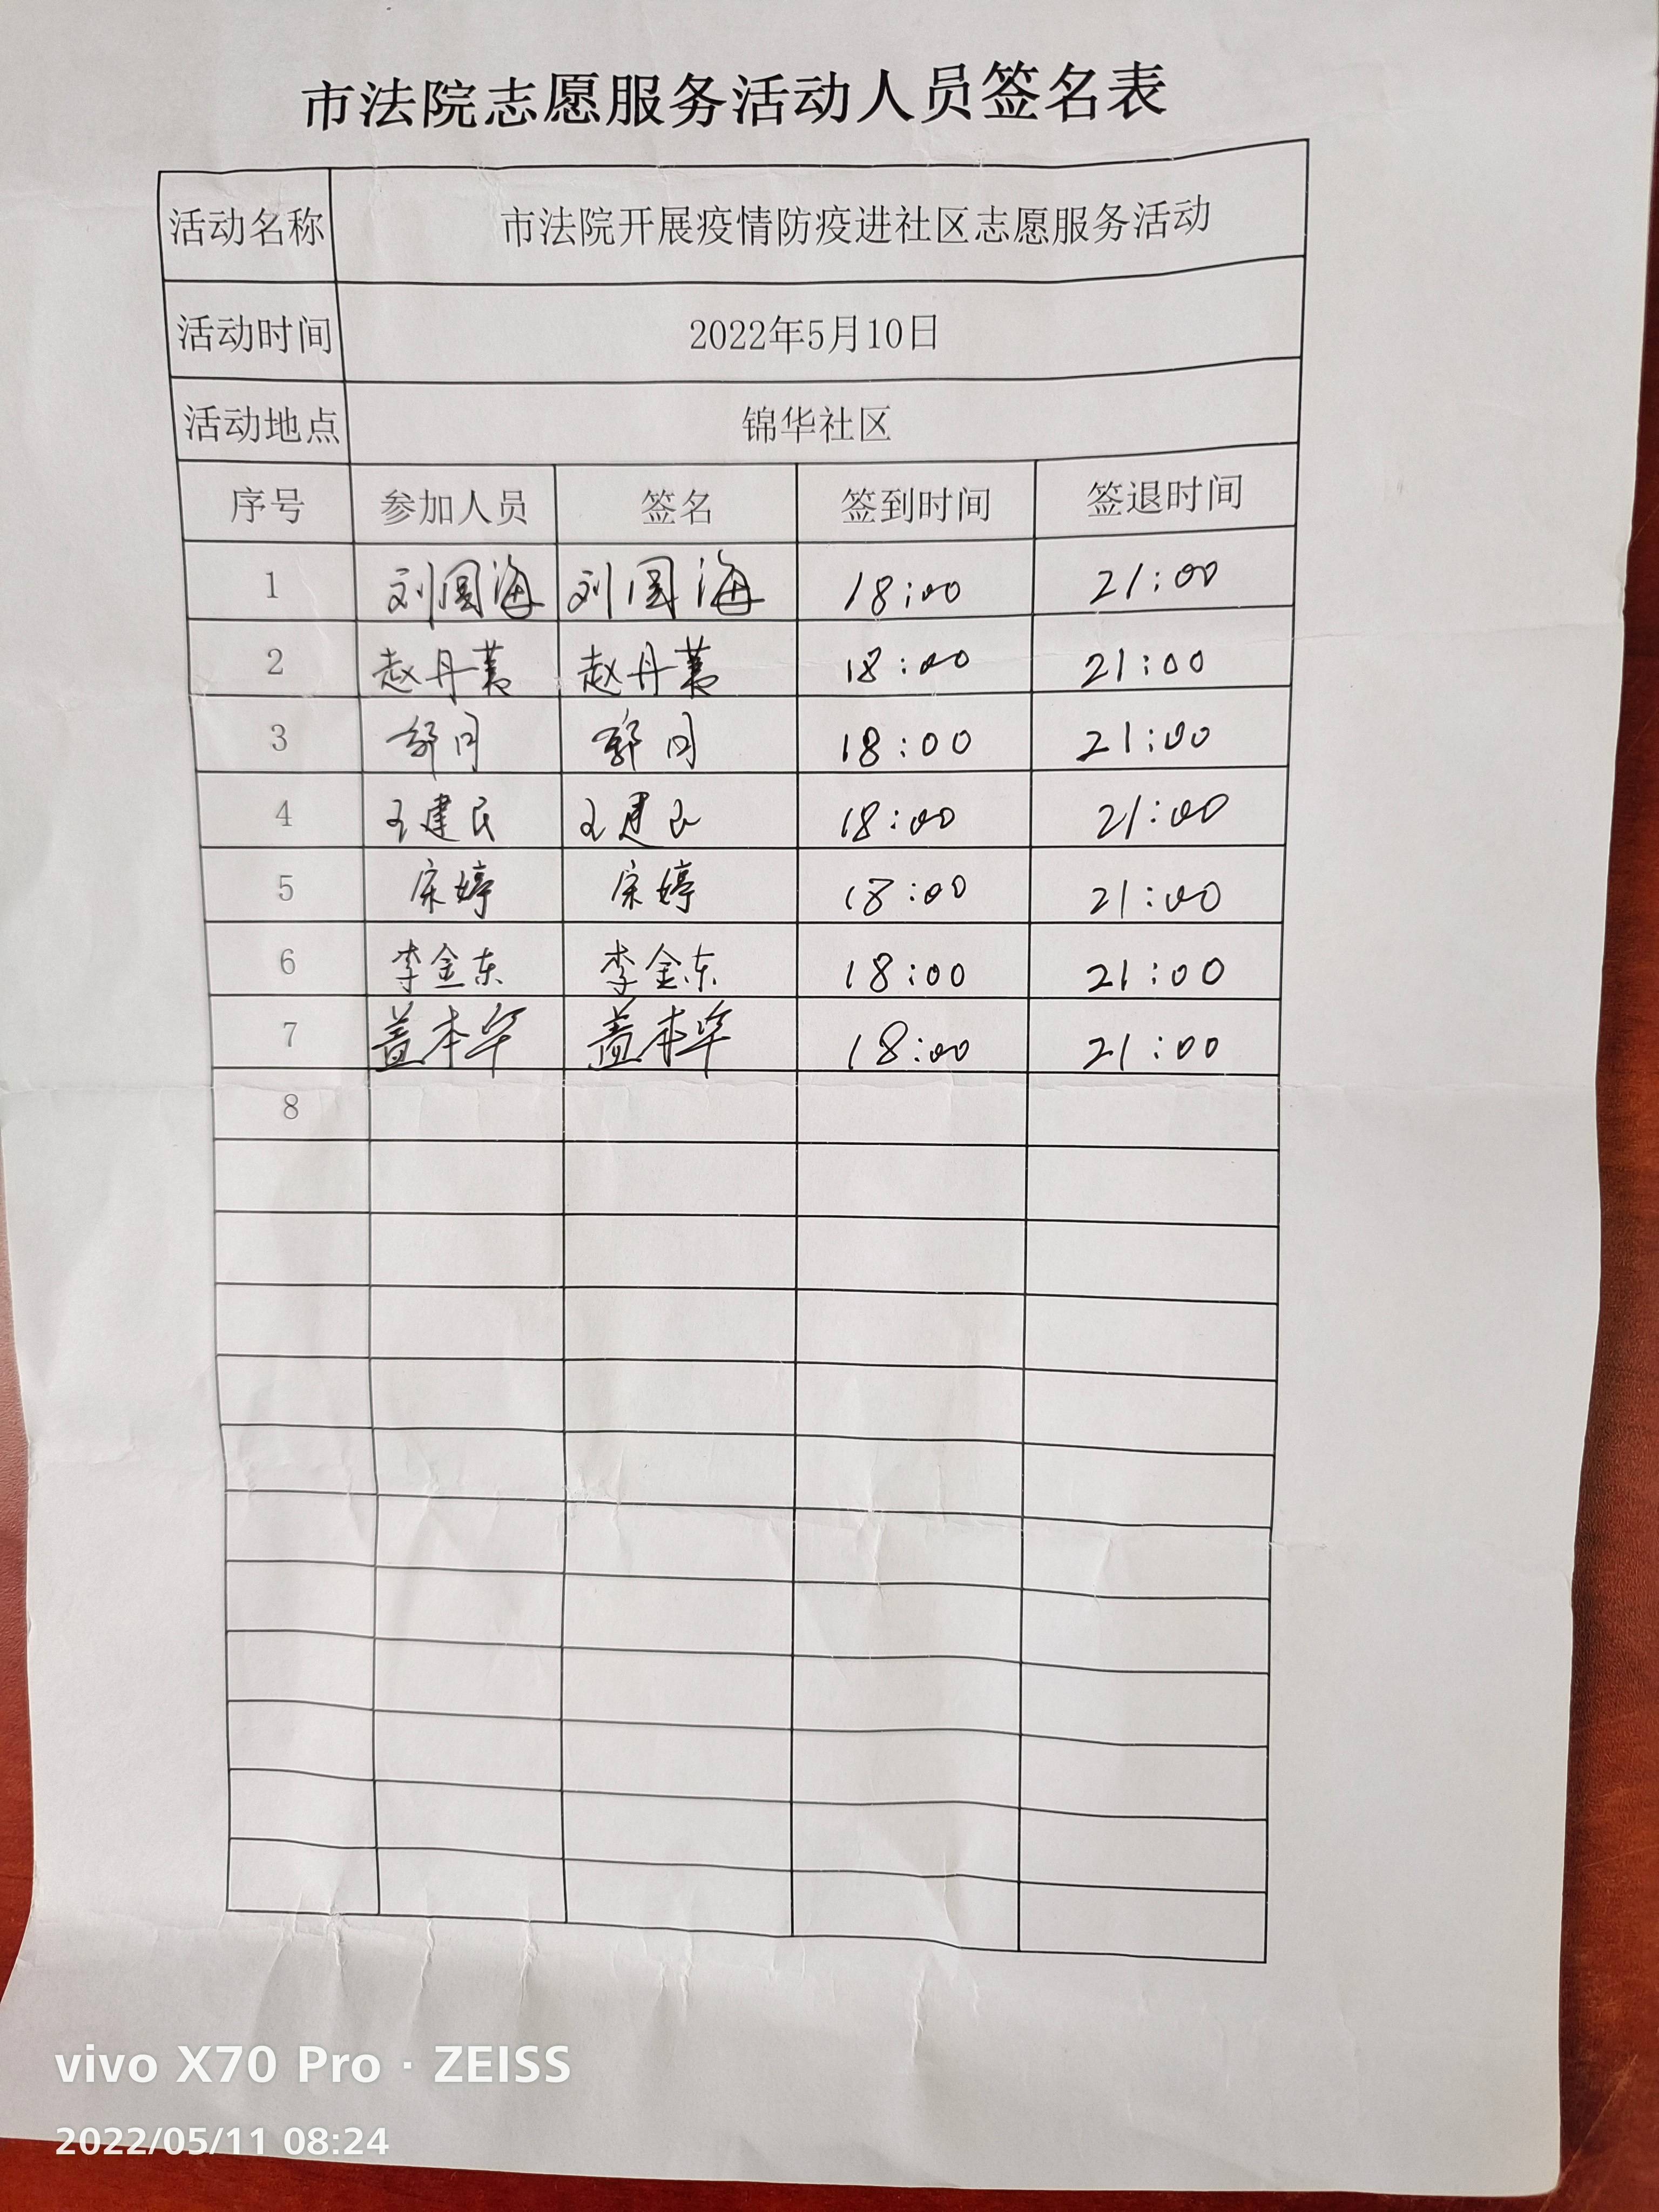 市法院志愿服务活动人员签名表
活动名称 市法院开展疫情防疫进社区志愿服务活动
活动时间 2022年5月10日
活动地点 锦华社区
序号 参加人员 签名 签到时间 签退时间
1 刘国海 刘国海 18:00 21:00
2 赵丹 赵丹 18:00 21:00
3 18:00 21:00
4 王建民 王建民 18:00 21:00
5 宋婷 宋婷 18:00 21:00
6 李金东 李金东 18:00 21:00
7 盖本 盖本 18:00 21:00
8
vivo X70 Pro · ZEISS
2022/05/11 08:24